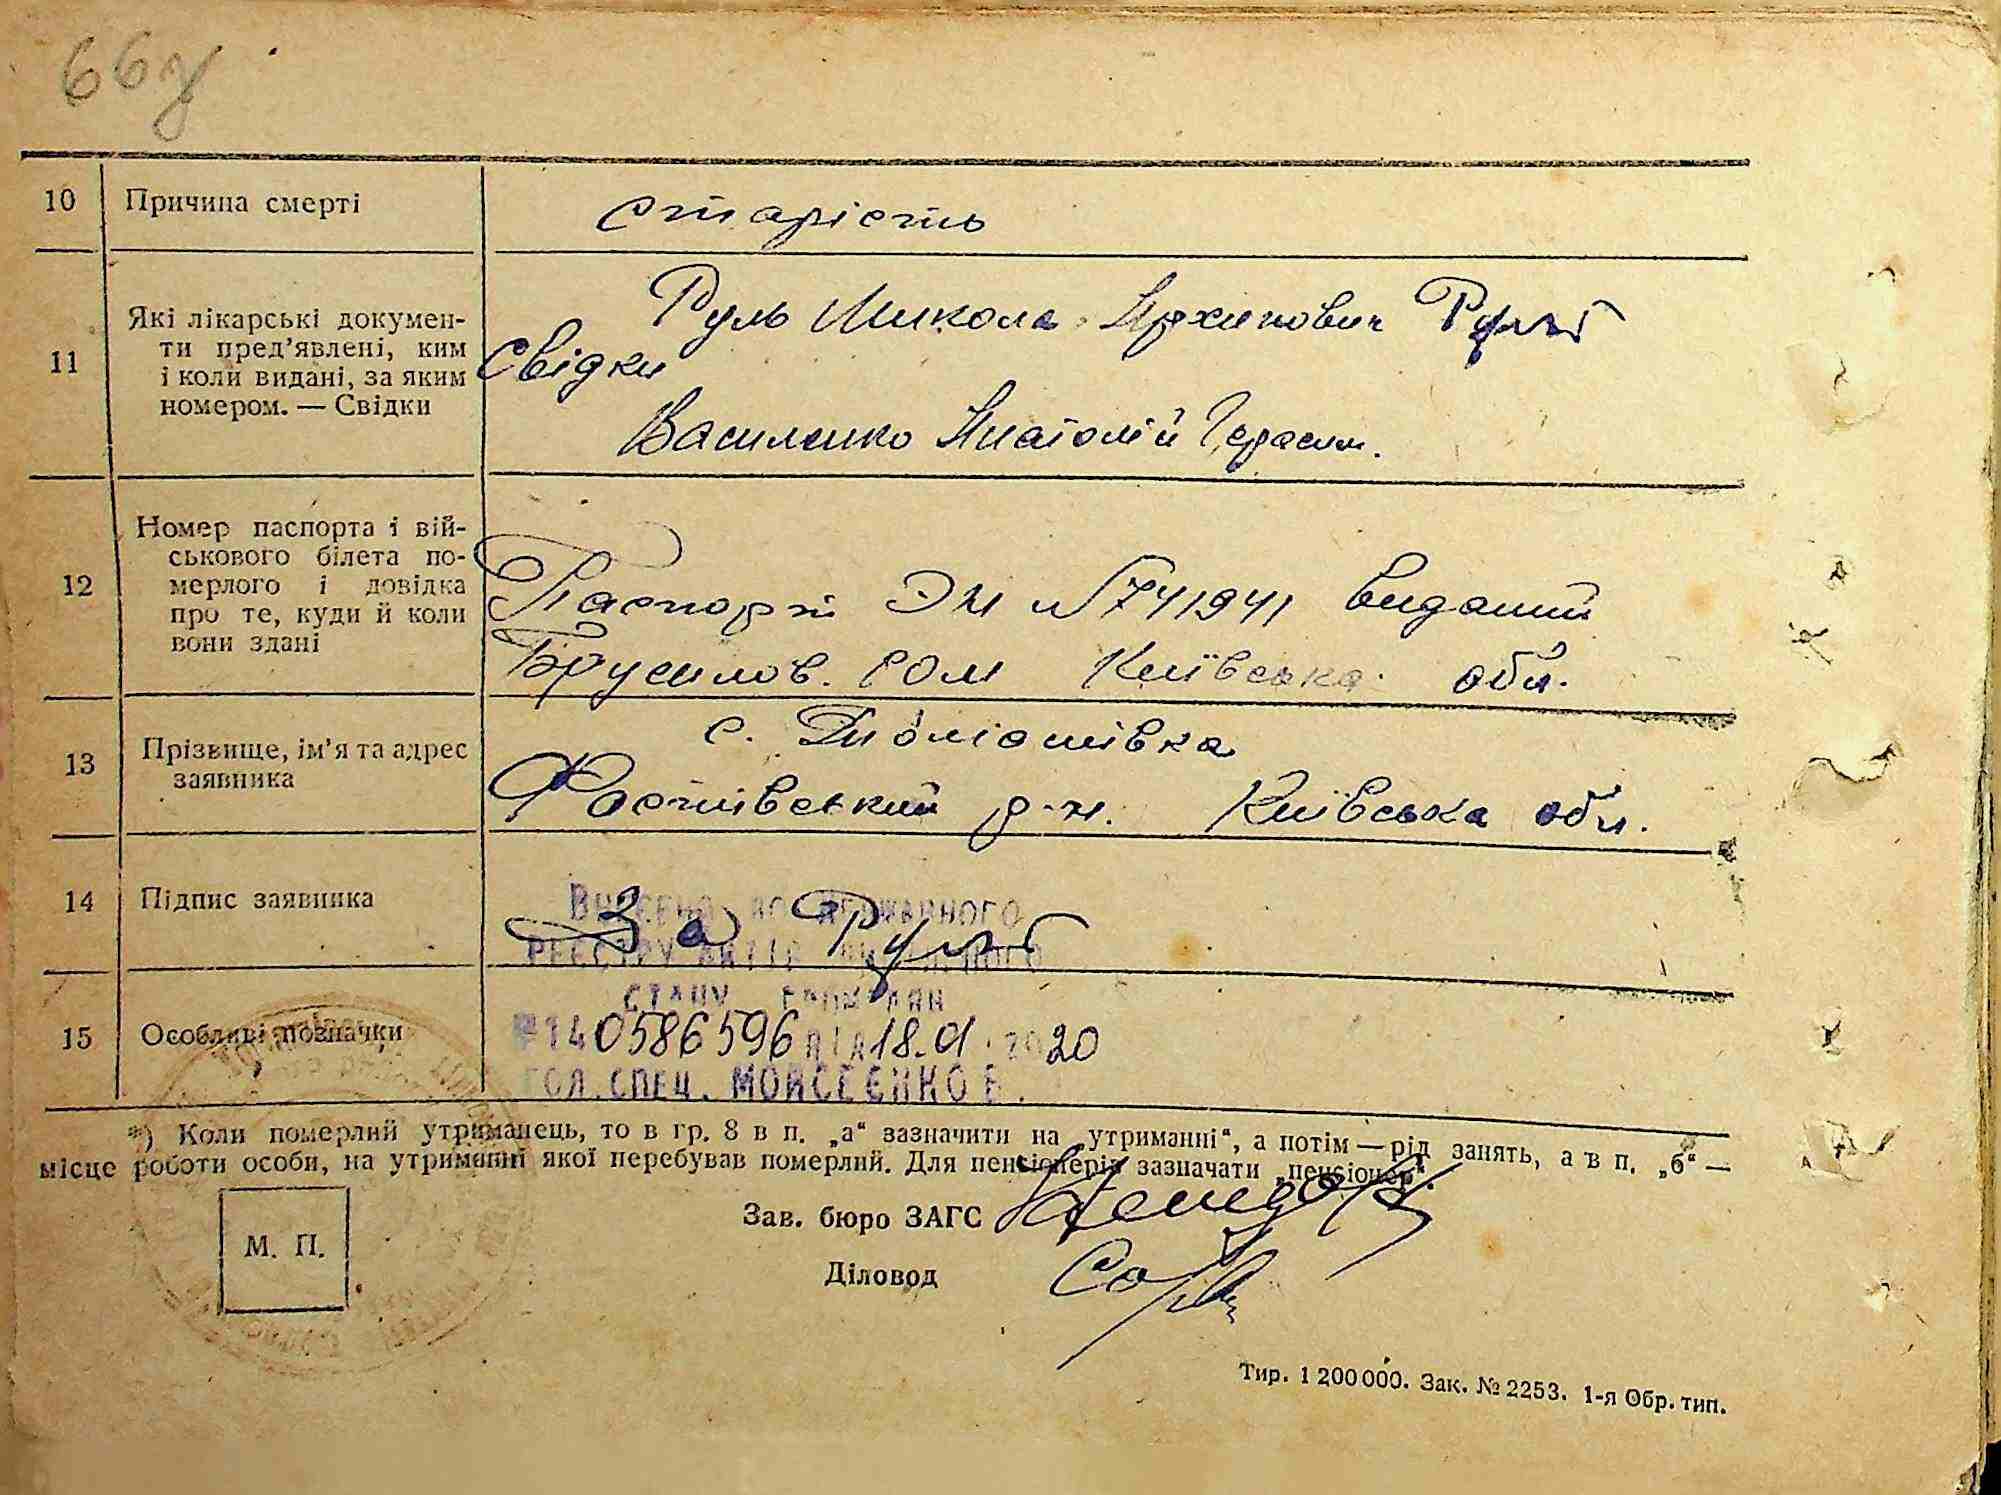 10 Причина смерті старість
11 Які лікарські докумен-
ти пред'явлені, ким
і коли видані, за яким
номером. — Свідки
Руль Микола Архипович Руль
Свідки
Василенко Анатолій Герасим.
12 Номер паспорта і вій-
ськового білета по-
мерлого і довідка
про те, куди й коли
вони здані
Паспорт № 741941 виданий
Брусилов. РОМ Київська обл.
13 Прізвище, ім'я та адрес
заявника
с.
Фастівський р-н. Київська обл.
14 Підпис заявника
За Руль
15 Особливі позначки
ВНЕСЕНО ДО ДЕРЖАВНОГО
РЕЄСТРУ АКТІВ ЦИВІЛЬНОГО
СТАНУ ГРОМАДЯН
№ 140586596 ВІД 18.01.2020
ГОЛ.СПЕЦ. МОЙСЕЄНКО В.
*) Коли померлий утриманець, то в гр. 8 в п. „а“ зазначити на „утриманні“, а потім — рід занять, а в п. „б“ —
місце роботи особи, на утриманні якої перебував померлий. Для пенсіонерів зазначати „пенсіонер“.
М. П.
Зав. бюро ЗАГС
Діловод
Тир. 1 200 000. Зак. № 2253. 1-я Обр. тип.